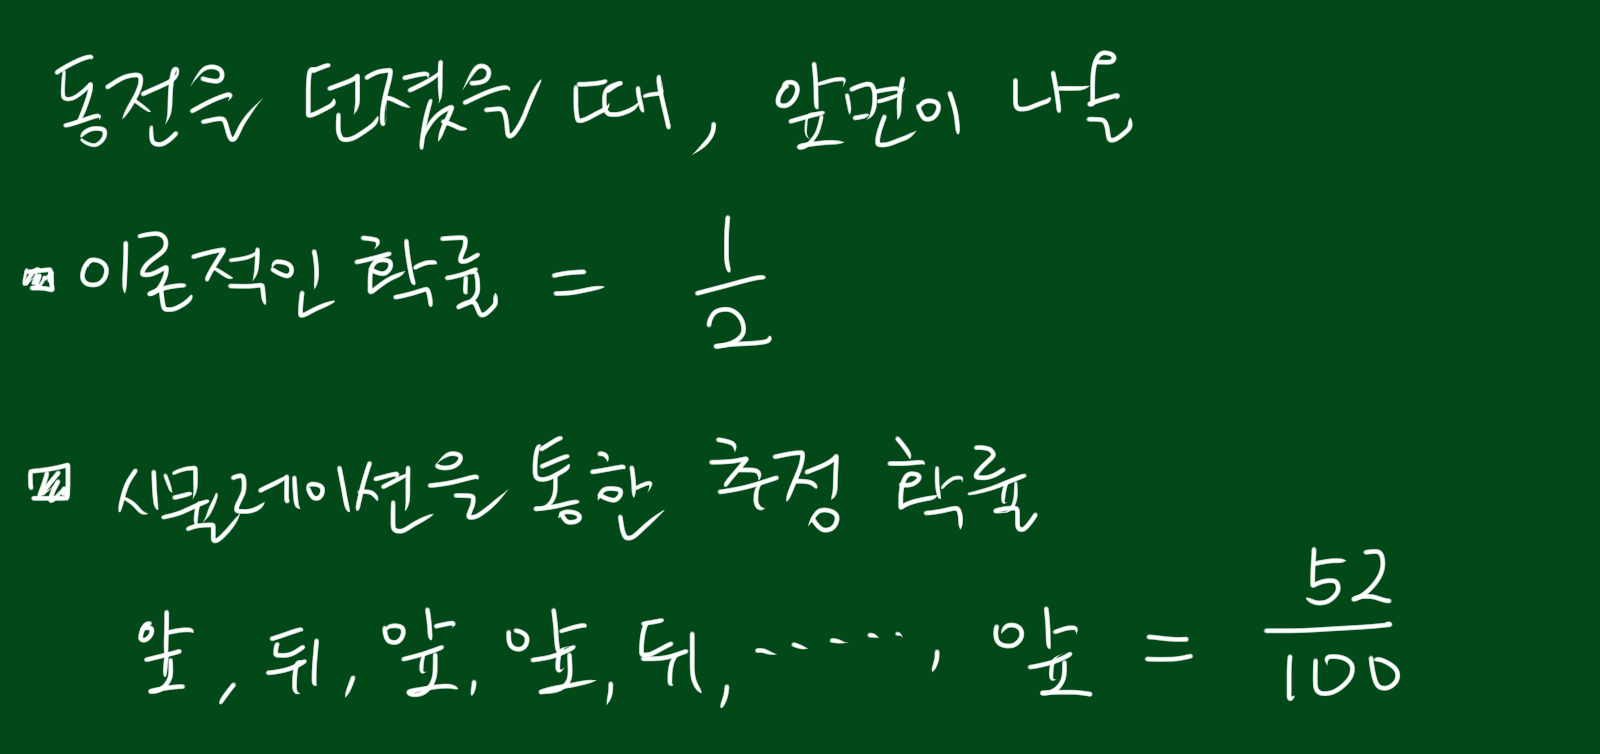 동전을 던졌을 때, 앞면이 나올
이론적인 확률 = 1/2
시뮬레이션을 통한 추정 확률
앞, 뒤, 앞, 앞, 뒤, ······, 앞 = 52/100